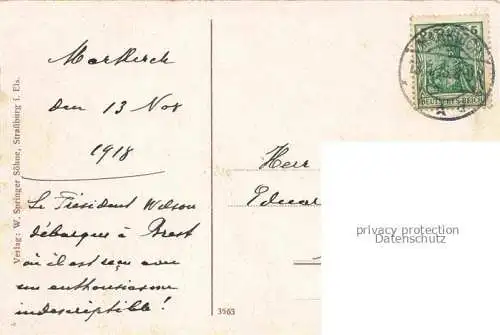 Markirch
den 13 Nov
1918
Le Président Wilson
débarque à Brest
où il est reçu avec
un enthousiasme
indescriptible!
Herr
Eduar
Verlag: W. Springer Söhne, Straßburg i. Els.
3563
5
DEUTSCHES REICH
privacy protection
Datenschutz